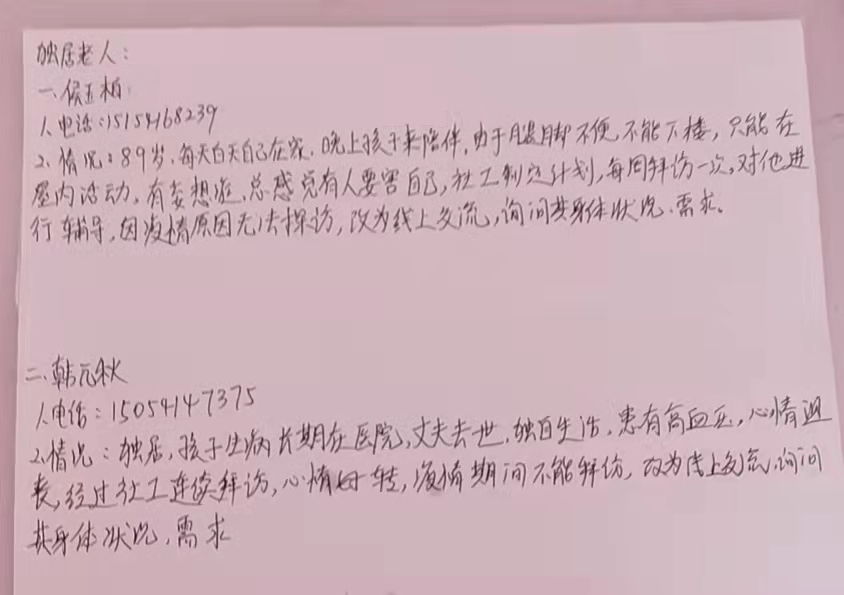 独居老人：
一、侯玉柏：
1、电话：15154168239
2、情况：89岁，每天白天自己在家，晚上孩子来陪伴，由于腿脚不便，不能下楼，只能在
屋内活动，有妄想症，总感觉有人要害自己，社工制定计划，每周拜访一次，对他进
行辅导，因疫情原因无法探访，改为线上交流，询问其身体状况、需求。
二、韩元秋
1、电话：15054147375
2、情况：独居，孩子生病长期在医院，丈夫去世，独自生活，患有高血压，心情
，经过社工连续拜访，心情好转，疫情期间不能拜访，改为线上交流，询问
其身体状况，需求